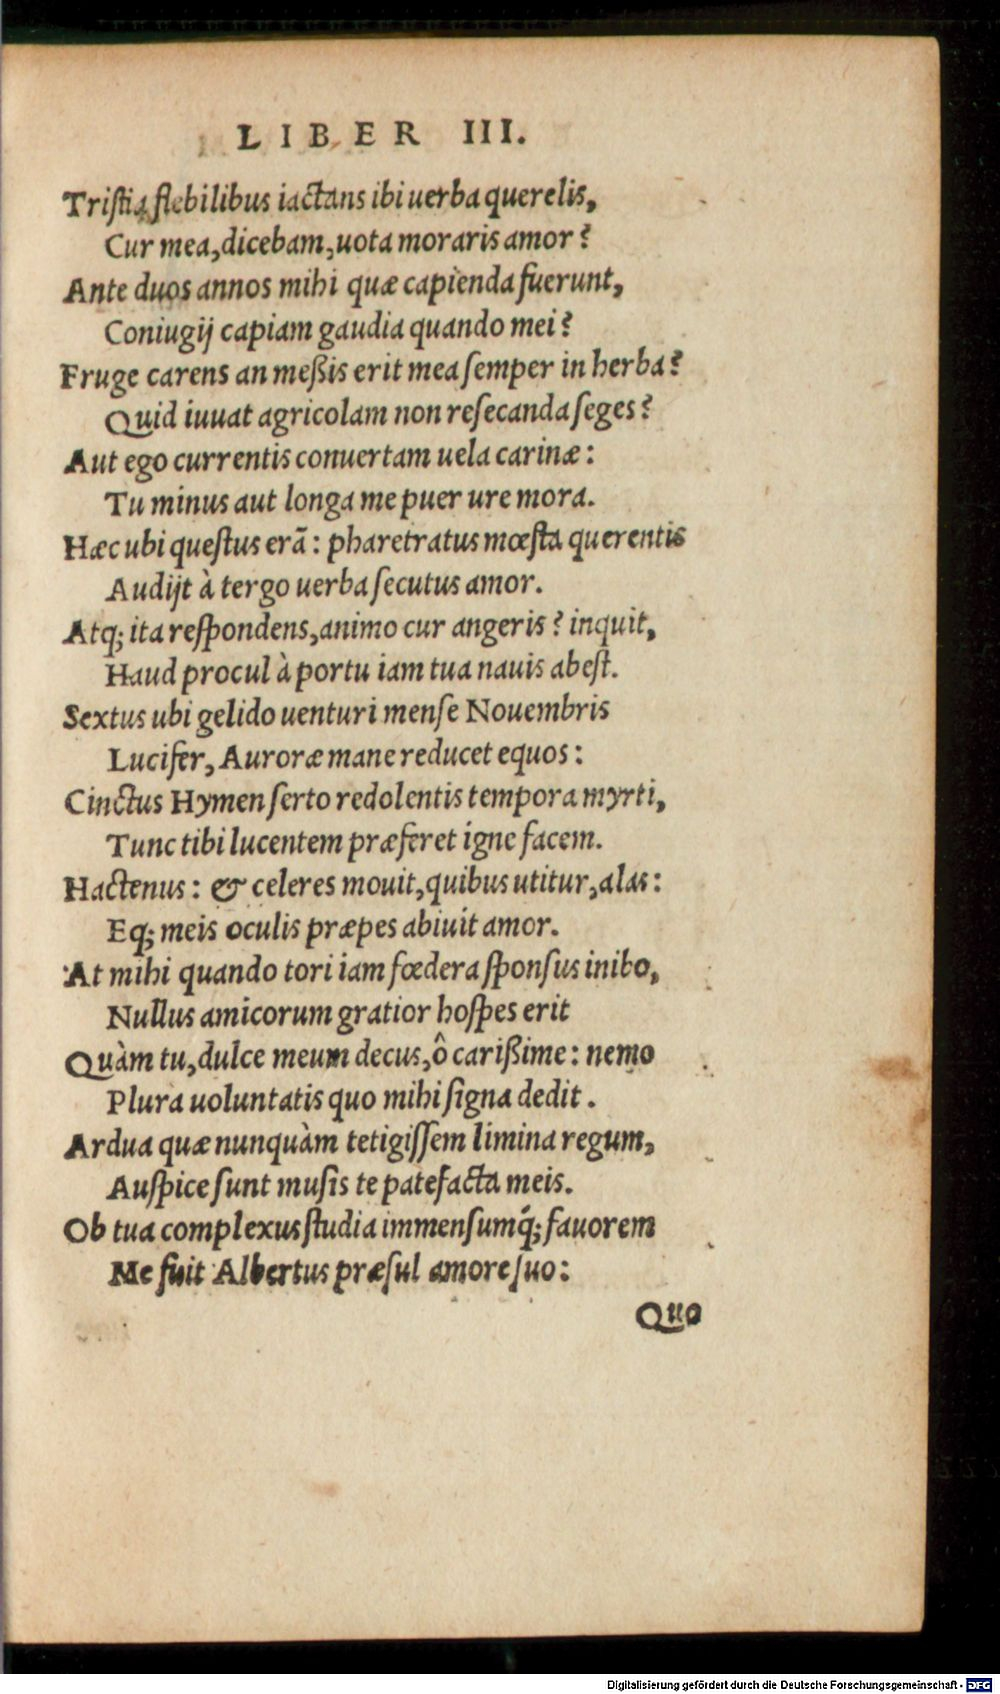 LIBER III.
Tristia flebilibus iactans ibi uerba querelis,
Cur mea, dicebam, uota moraris amor?
Ante duos annos mihi quæ capienda fuerunt,
Coniugij capiam gaudia quando mei?
Fruge carens an meßis erit mea semper in herba?
Quid iuuat agricolam non resecanda seges?
Aut ego currentis conuertam uela carinæ:
Tu minus aut longa me puer ure mora.
Hæc ubi questus erã: pharetratus mœsta querentis
Audijt à tergo uerba secutus amor.
Atq; ita respondens, animo cur angeris? inquit,
Haud procul à portu iam tua nauis abest.
Sextus ubi gelido uenturi mense Nouembris
Lucifer, Auroræ mane reducet equos:
Cinctus Hymen serto redolentis tempora myrti,
Tunc tibi lucentem præferet igne facem.
Hactenus: & celeres mouit, quibus utitur, alas:
Eq; meis oculis præpes abiuit amor.
At mihi quando tori iam fœdera sponsus inibo,
Nullus amicorum gratior hospes erit
Quàm tu, dulce meum decus, ô carißime: nemo
Plura uoluntatis quo mihi signa dedit.
Ardua quæ nunquàm tetigissem limina regum,
Auspice sunt musis te patefacta meis.
Ob tua complexus studia immensumq́; fauorem
Me fuit Albertus præsul amore suo:
Quo
Digitalisierung gefördert durch die Deutsche Forschungsgemeinschaft - DFG